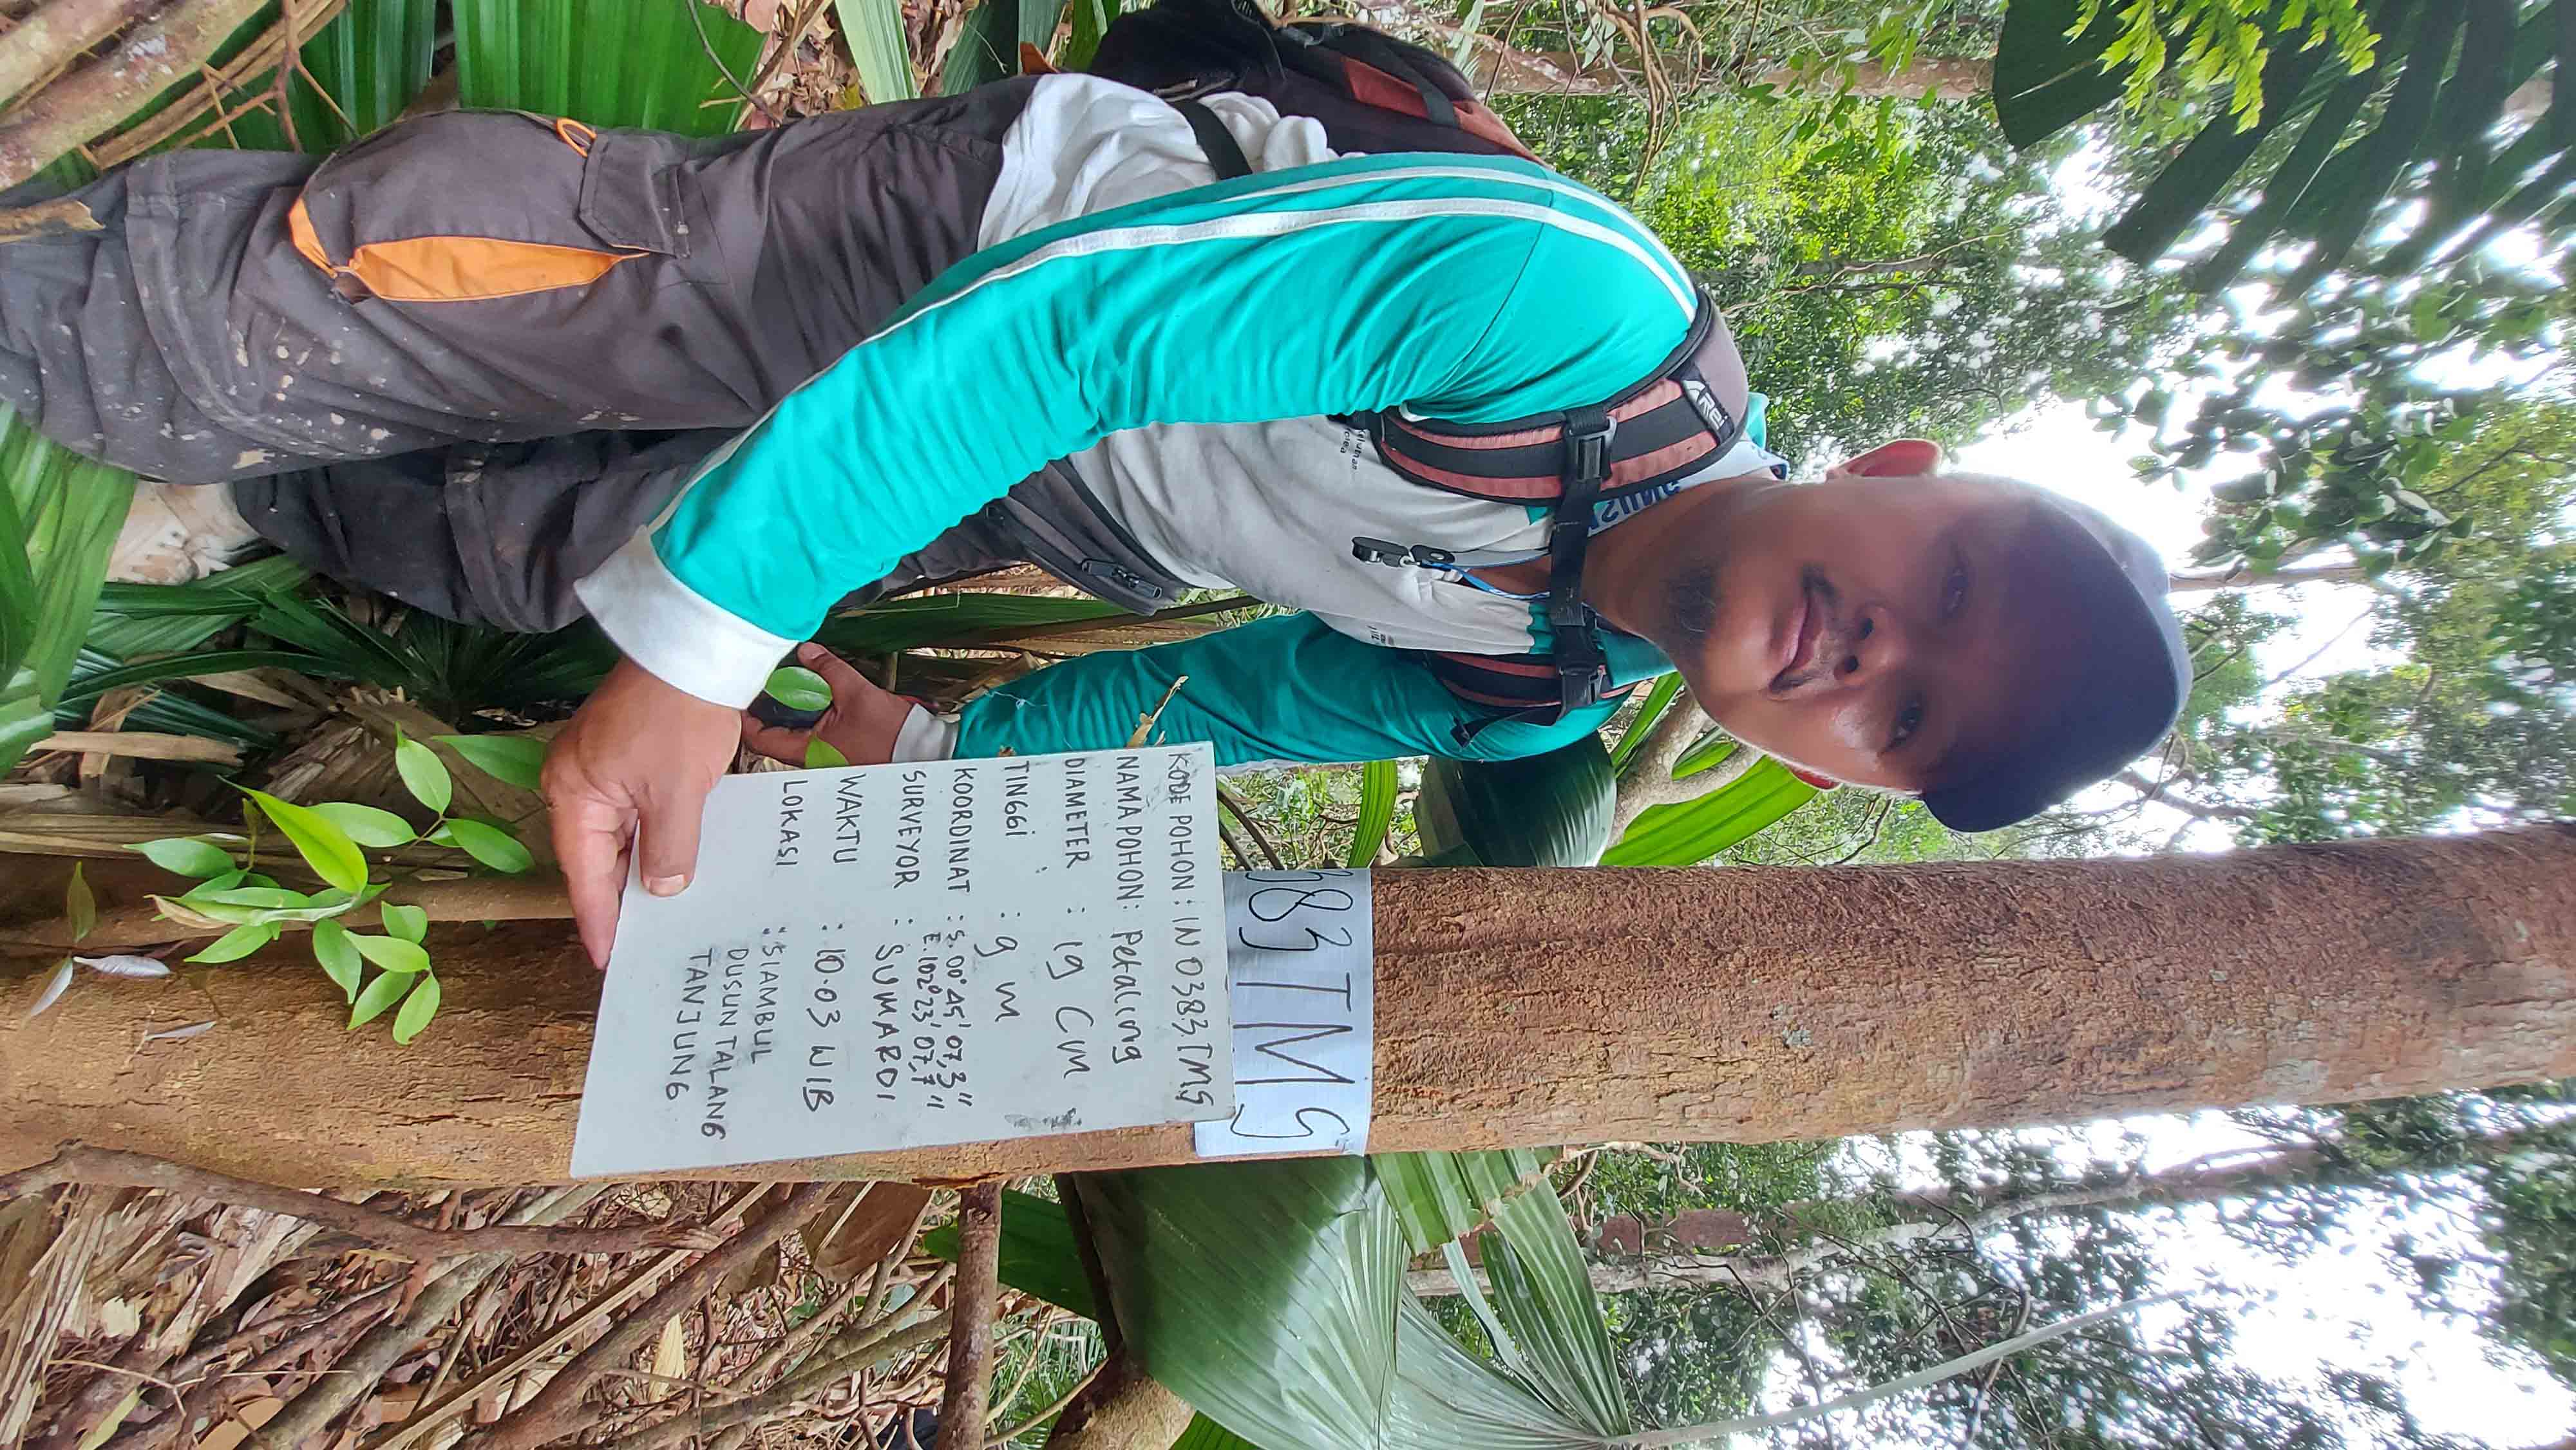 Arei
383 TMS
KODE POHON : IN 0383 TMS
NAMA POHON : Petaling
DIAMETER : 19 CM
TINGGI : 9 M
KOORDINAT : S. 00° 45' 07,3"
E. 102° 23' 07,7"
SURVEYOR : SUMARDI
WAKTU : 10.03 WIB
LOKASI : SIAMBUL
DUSUN TALANG
TANJUNG